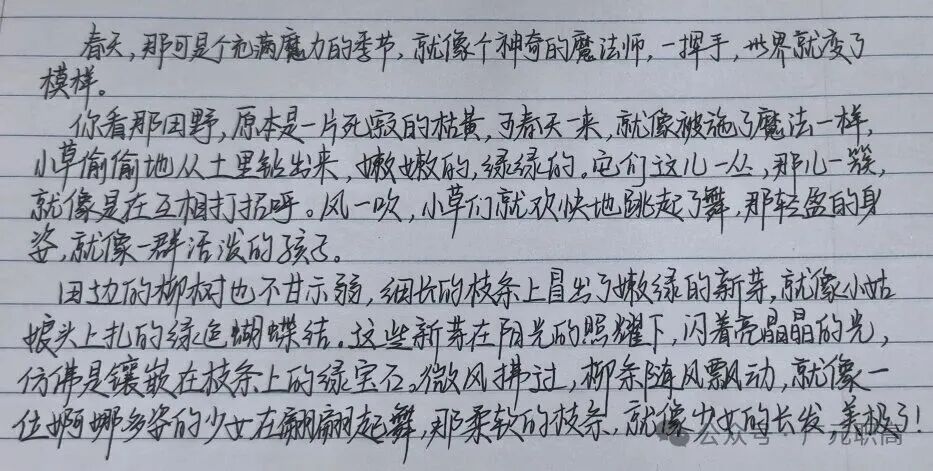 春天,那可是个充满魔力的季节,就像个神奇的魔法师,一挥手,世界就变了
模样。
你看那田野,原本是一片死寂的枯黄,可春天一来,就像被施了魔法一样,
小草偷偷地从土里钻出来,嫩嫩的,绿绿的。它们这儿一丛,那儿一簇,
就像是在互相打招呼。风一吹,小草们就欢快地跳起了舞,那轻盈的身
姿,就像一群活泼的孩子。
田边的柳树也不甘示弱,细长的枝条上冒出了嫩绿的新芽,就像小姑
娘头上扎的绿色蝴蝶结。这些新芽在阳光的照耀下,闪着亮晶晶的光,
仿佛是镶嵌在枝条上的绿宝石。微风拂过,柳条随风飘动,就像一
位婀娜多姿的少女在翩翩起舞,那柔软的枝条,就像少女的长发,美极了!
公众号·广元职高